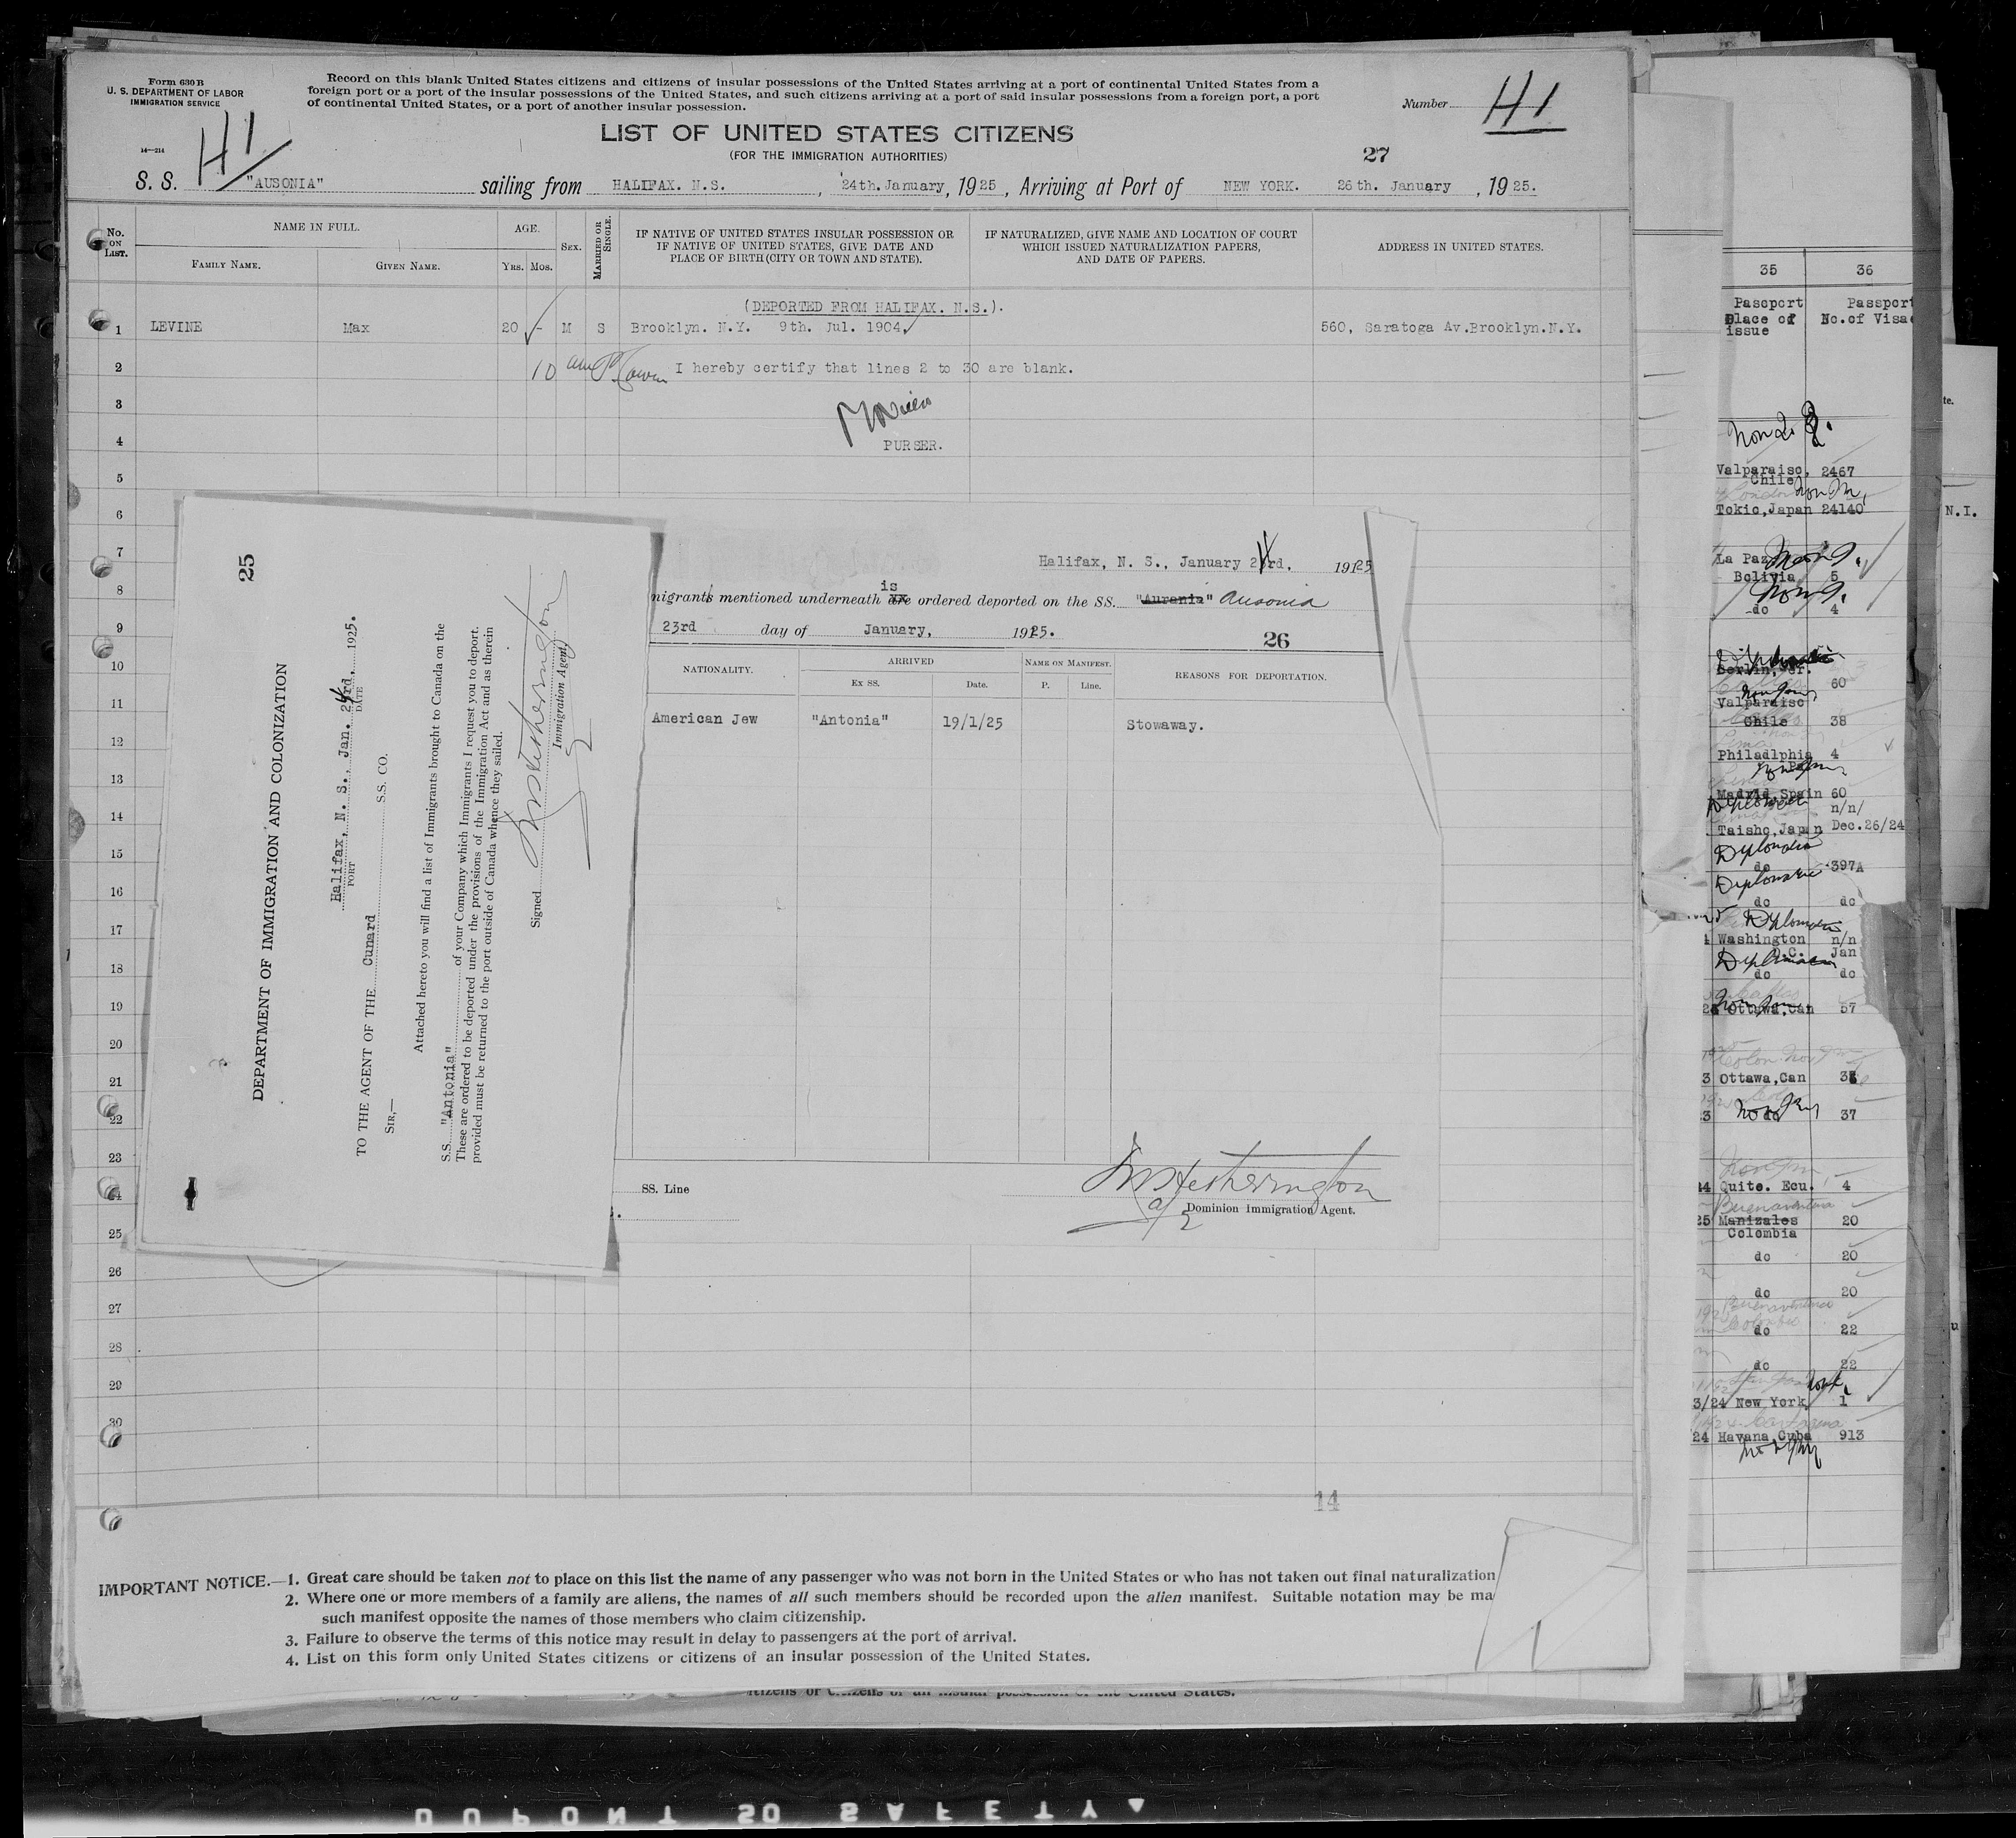 Form 630 B
U. S. DEPARTMENT OF LABOR
IMMIGRATION SERVICE
14—214
Record on this blank United States citizens and citizens of insular possessions of the United States arriving at a port of continental United States from a
foreign port or a port of the insular possessions of the United States, and such citizens arriving at a port of said insular possessions from a foreign port, a port
of continental United States, or a port of another insular possession.
Number H1
H1
LIST OF UNITED STATES CITIZENS
(FOR THE IMMIGRATION AUTHORITIES)
27
S. S. "AUSONIA" sailing from HALIFAX. N.S., 24th. January, 1925, Arriving at Port of NEW YORK. 26th. January, 1925.
No. ON LIST.
NAME IN FULL.
FAMILY NAME.
GIVEN NAME.
AGE.
YRS. MOS.
SEX.
MARRIED OR SINGLE.
IF NATIVE OF UNITED STATES INSULAR POSSESSION OR
IF NATIVE OF UNITED STATES, GIVE DATE AND
PLACE OF BIRTH (CITY OR TOWN AND STATE).
IF NATURALIZED, GIVE NAME AND LOCATION OF COURT
WHICH ISSUED NATURALIZATION PAPERS,
AND DATE OF PAPERS.
ADDRESS IN UNITED STATES.
(DEPORTED FROM HALIFAX. N.S.).
1 LEVINE Max 20 - M S Brooklyn. N.Y. 9th. Jul. 1904. 560, Saratoga Av.Brooklyn.N.Y.
2 10 am I hereby certify that lines 2 to 30 are blank.
3
4 PURSER.
5
6
7
8
9
10
11
12
13
14
15
16
17
18
19
20
21
22
23
24
25
26
27
28
29
30
25
DEPARTMENT OF IMMIGRATION AND COLONIZATION
Halifax, N. S., Jan. 24rd, 1925.
PORT DATE
TO THE AGENT OF THE Cunard S.S. CO.
SIR,—
Attached hereto you will find a list of Immigrants brought to Canada on the
S.S. "Antonia" of your Company which Immigrants I request you to deport.
These are ordered to be deported under the provisions of the Immigration Act and as therein
provided must be returned to the port outside of Canada whence they sailed.
Signed Hetherington
Immigration Agent
Halifax, N. S., January 24rd, 1925
is
nigrants mentioned underneath are ordered deported on the SS. "Aurania" Ausonia
23rd day of January, 1925.
26
NATIONALITY.
ARRIVED
EX SS.
Date.
NAME ON MANIFEST.
P. Line.
REASONS FOR DEPORTATION.
American Jew "Antonia" 19/1/25 Stowaway.
SS. Line
Hetherington
Dominion Immigration Agent.
14
IMPORTANT NOTICE.—1. Great care should be taken not to place on this list the name of any passenger who was not born in the United States or who has not taken out final naturalization
2. Where one or more members of a family are aliens, the names of all such members should be recorded upon the alien manifest. Suitable notation may be ma
such manifest opposite the names of those members who claim citizenship.
3. Failure to observe the terms of this notice may result in delay to passengers at the port of arrival.
4. List on this form only United States citizens or citizens of an insular possession of the United States.
35 36
Passport Place of issue
Passport No.of Visa
te.
Valparaiso, Chile 2467
Tokio,Japan 24140
N.I.
La Paz Bolivia 5
do 4
Berlin,Ger. 60
Valparaiso Chile 38
Philadlphia Pa. 4
Madrid,Spain 60
n/n/
Taisho,Japan Dec.26/24
Diplomatic
do 397A
Diplomatic
do do
Diplomatic
Washington D.C. n/n Jan
Diplomatic
do do
Ottawa,Can 57
3 Ottawa,Can
3 do 37
44 Quito. Ecu. 4
Buenaventura
25 Manizales Colombia 20
do 20
do 20
Buenaventura
do 22
do 22
3/24 New York 1
Cartagena
24 Havana,Cuba 913
itizens or citizens of an insular possession of the United States.
DUPONT SO SAFETY